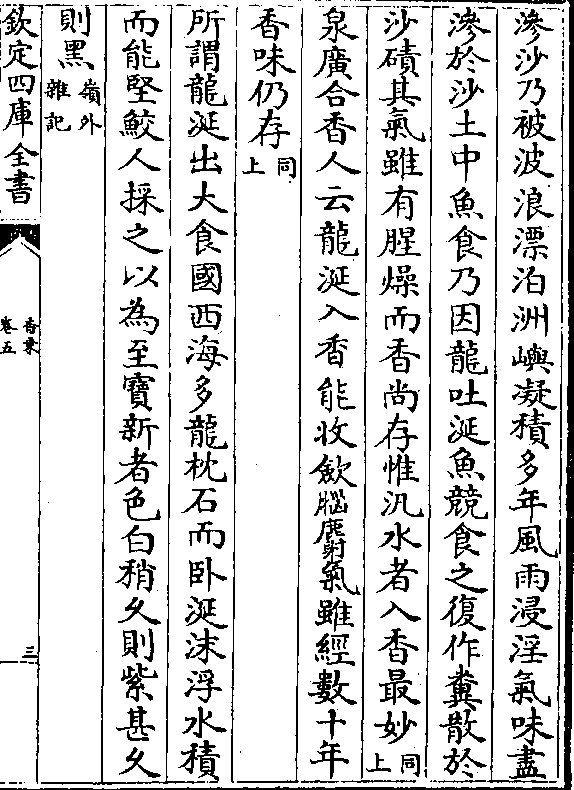 滲沙乃被波浪漂泊洲嶼凝積多年風雨浸淫氣味盡
滲於沙土中魚食乃因龍吐涎魚競食之復作糞散於
沙磧其氣雖有腥燥而香尚存惟汎水者入香最妙同上
泉廣合香人云龍涎入香能收斂腦麝氣雖經數十年
香味仍存同上
所謂龍涎出大食國西海多龍枕石而卧涎沫浮水積
而能堅鮫人採之以為至寳新者色白稍久則紫甚久
則黑嶺外雜記
欽定四庫全書
香乘
卷五
三